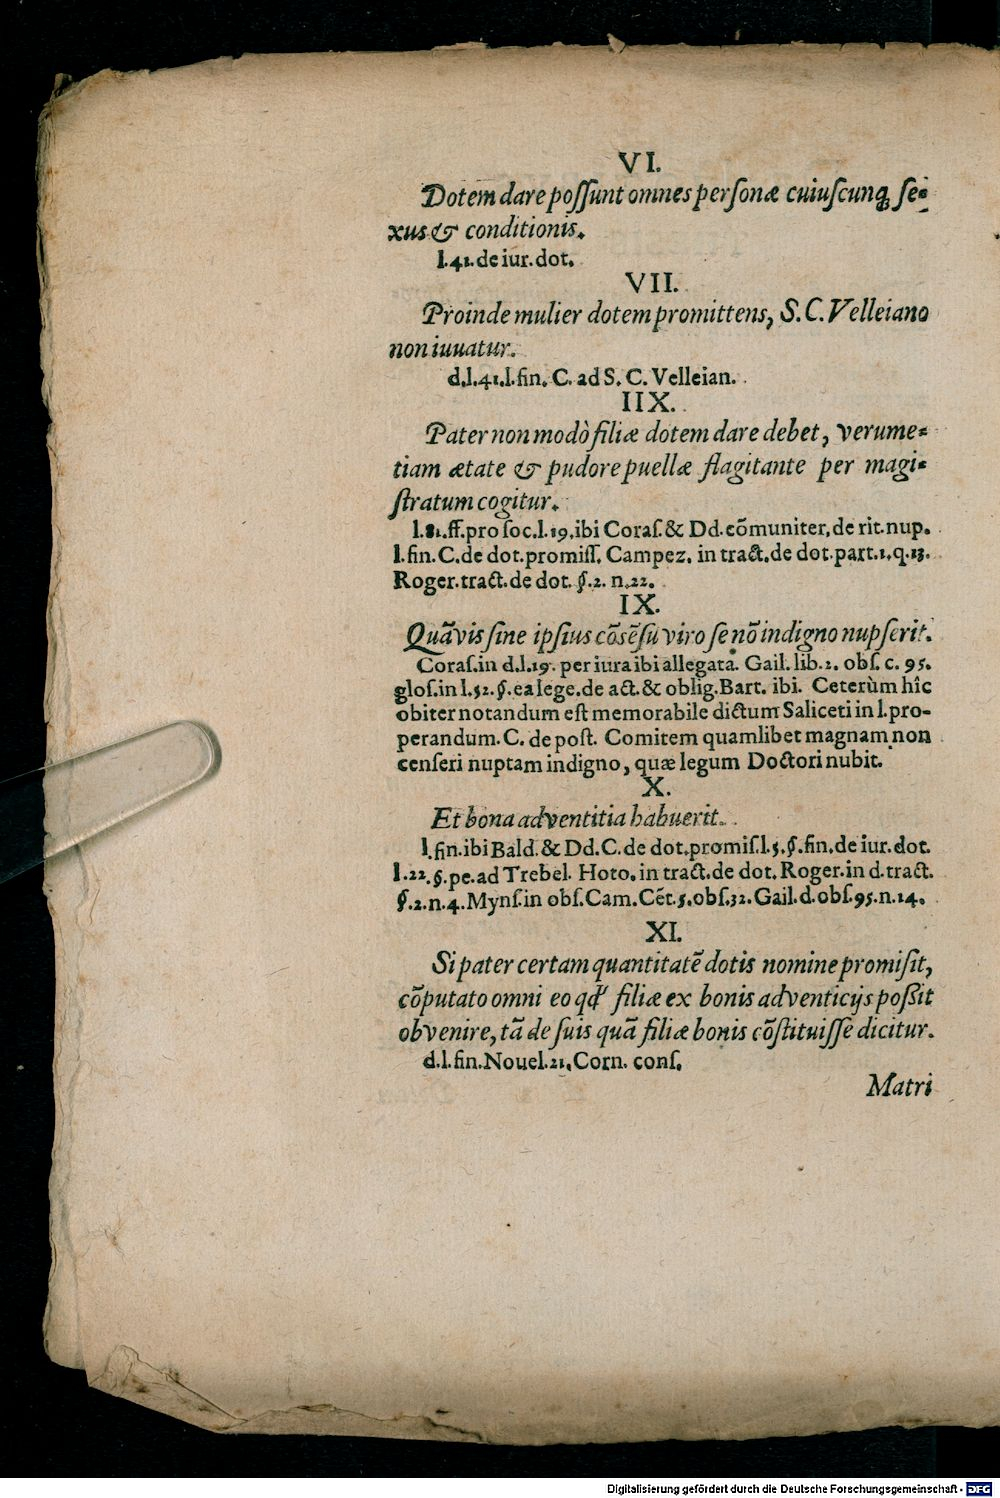 VI.
Dotem dare poſſunt omnes perſonæ cuiuſcunq́ ſe-
xus & conditionis.
l.41. de iur. dot.
VII.
Proinde mulier dotem promittens, S. C. Velleiano
non iuuatur.
d.l.41.l.fin. C. ad S. C. Velleian.
IIX.
Pater non modò filiæ dotem dare debet, verume-
tiam ætate & pudore puellæ flagitante per magi-
ſtratum cogitur.
l.81.ff.pro ſoc.l.19.ibi Coraſ. & Dd. cōmuniter, de rit. nup.
l.fin. C. de dot. promiſſ. Campez. in tract. de dot. part.1.q.13.
Roger. tract. de dot. §.2. n.22.
IX.
Quāvis ſine ipſius cōsēſu viro ſe nō indigno nupſerit.
Coraſ. in d.l.19. per iura ibi allegata. Gail. lib.2. obſ. c. 95.
gloſ. in l.52.§. ea lege. de act. & oblig. Bart. ibi. Ceterùm hîc
obiter notandum eſt memorabile dictum Saliceti in l. pro-
perandum. C. de poſt. Comitem quamlibet magnam non
cenſeri nuptam indigno, quæ legum Doctori nubit.
X.
Et bona adventitia habuerit.
l.fin. ibi Bald. & Dd. C. de dot. promiſ. l.5.§.fin. de iur. dot.
l.22.§.pe. ad Trebel. Hoto. in tract. de dot. Roger. in d. tract.
§.2.n.4. Mynſ. in obſ. Cam. Cēt.5. obſ.32. Gail. d. obſ.95.n.14.
XI.
Si pater certam quantitatē dotis nomine promiſit,
cōputato omni eo qd filiæ ex bonis adventicijs poßit
obvenire, tā de ſuis quā filiæ bonis cōſtituiſſe dicitur.
d.l.fin. Nouel.21. Corn. conſ.
Matri
Digitalisierung gefördert durch die Deutsche Forschungsgemeinschaft - DFG